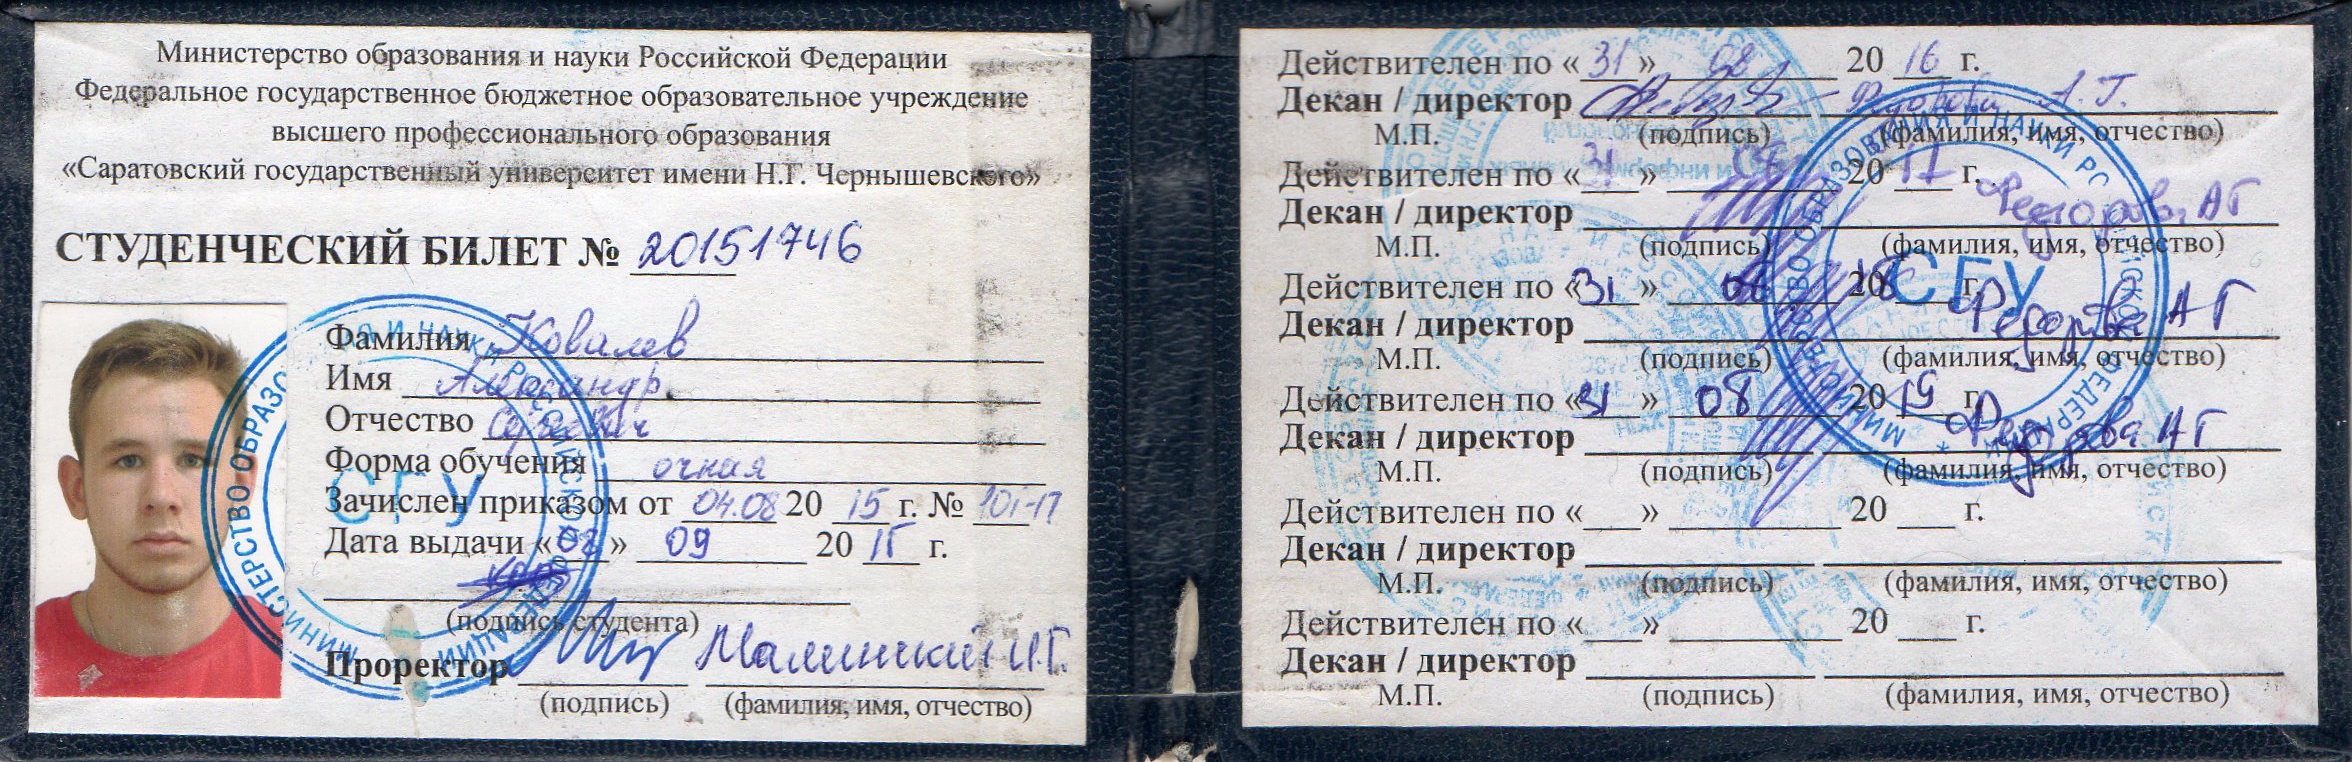 Министерство образования и науки Российской Федерации
Федеральное государственное бюджетное образовательное учреждение
высшего профессионального образования
«Саратовский государственный университет имени Н.Г. Чернышевского»
СТУДЕНЧЕСКИЙ БИЛЕТ № 20151746
Фамилия Ковалев
Имя Александр
Отчество
Форма обучения очная
Зачислен приказом от 04.08 20 15 г. №
Дата выдачи « » 09 20 15 г.
(подпись студента)
Проректор И.Г.
(подпись) (фамилия, имя, отчество)
МИНИСТЕРСТВО ОБРАЗО И НАУКИ РОССИЙСКОЙ ФЕДЕРАЦИИ
СГУ
Действителен по «31» 08 20 16 г.
Декан / директор Федорова А.Г.
М.П. (подпись) (фамилия, имя, отчество)
Действителен по «31» 08 20 17 г.
Декан / директор Федорова АГ
М.П. (подпись) (фамилия, имя, отчество)
Действителен по «31» 08 20 18 г.
Декан / директор Федорова АГ
М.П. (подпись) (фамилия, имя, отчество)
Действителен по «31» 08 20 19 г.
Декан / директор Федорова АГ
М.П. (подпись) (фамилия, имя, отчество)
Действителен по «___» ______ 20 ___ г.
Декан / директор
М.П. (подпись) (фамилия, имя, отчество)
Действителен по «___» ______ 20 ___ г.
Декан / директор
М.П. (подпись) (фамилия, имя, отчество)
СГУ